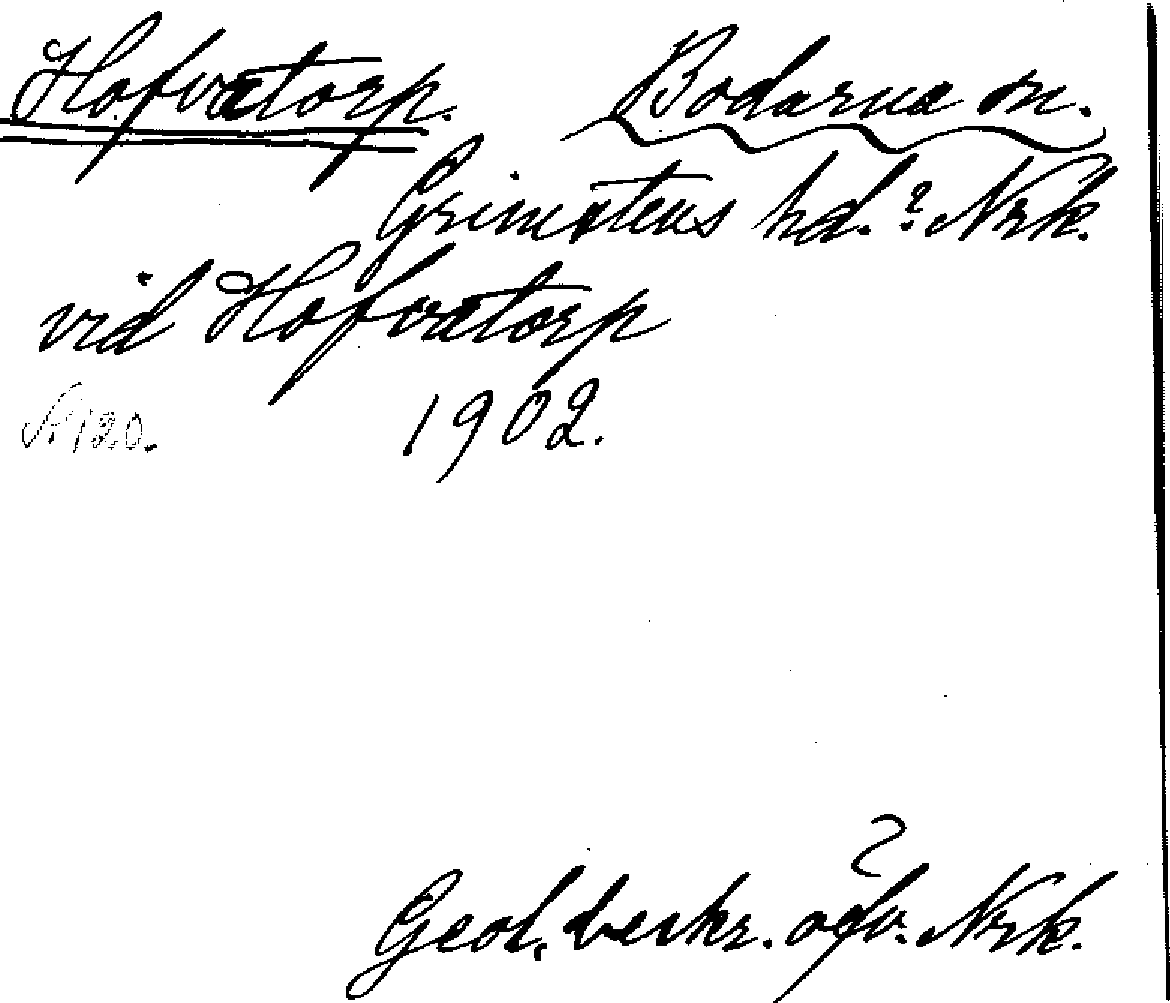 Hofvatorp. Bodarna sn.
Grimstens hd.? Nrk.
vid Hofvatorp
N 120. 1902.
?
Geol. beskr. öfv. Nrk.